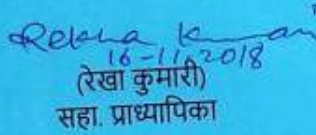 Rekha Kumari
16-11-2018
(रेखा कुमारी)
सहा. प्राध्यापिका